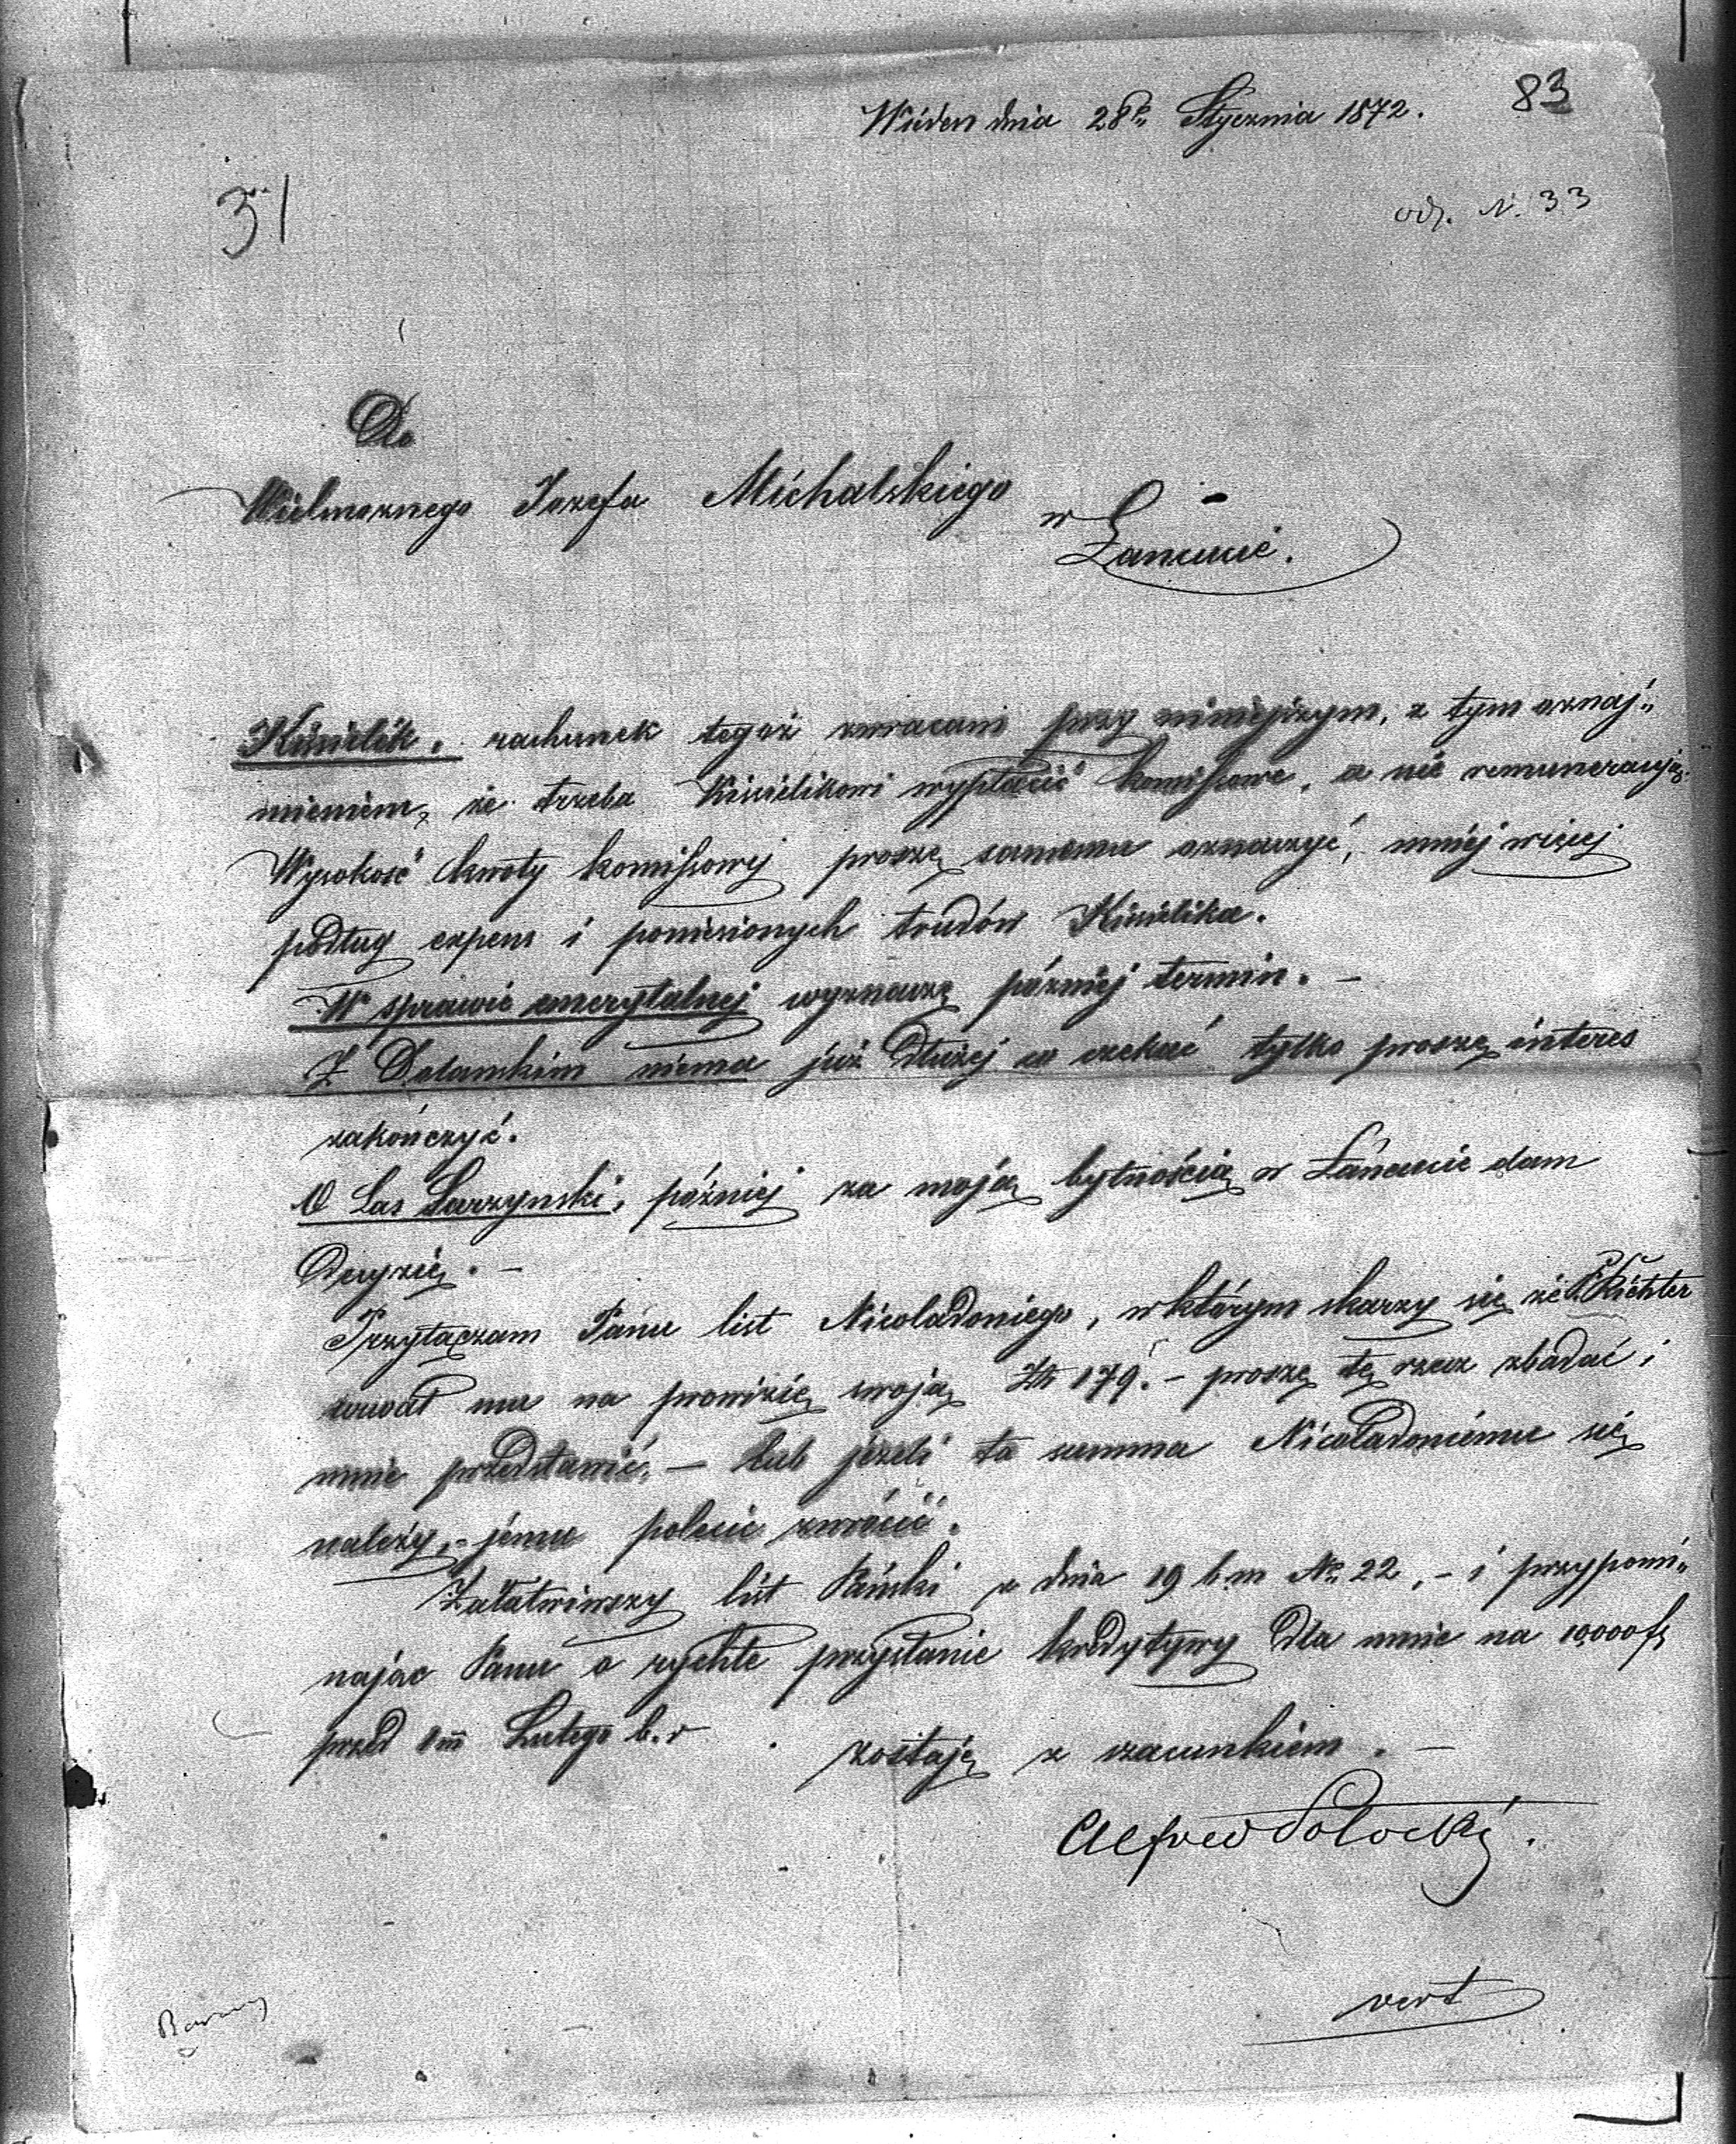 83
Wiédeń dnia 28go Stycznia 1872.
31
odp. N. 33
Do
Wielmożnego Jozefa Michalskiego
w
Łańcucie.
Kisielik. rachunek tegoż zwracam przy niniejszym, z tym oznaj„
mieniem, że trzeba Kisielikowi wypłacić komissowe, a nie remuneracyją.
Wysokość kwoty komissowej proszę samemu oznaczyć, mniéj więcej
podług expens i poniesionych trudów Kisielika.
W sprawie emerytalnej wyznaczę późniéj termin. —
Z Dolamskim niema już dłużéj co czekać tylko proszę interes
zakończyć.
O Las Sarzynski, późniéj za moją bytnością w Łańcucie dam
Decyzię. —
Przyłączam Panu list Nicoladoniego, w którym skarzy się że P. Richter
mu na prowizię swoją Złr 179. — proszę tę rzecz zbadać i
mnie przedstawić, — lub jeżeli ta summa Nicoladoniému się
należy, - jému polecic zwrócić.
Załatwiwszy list Pański z dnia 19 b.m No. 22, - i przypomi„
nając Panu o rychłe przysłanie kredytywy dla mnie na 10,000 fl
przed 1m Lutego b.r. zostaję z szacunkiem. —
Alfred Potocki.
vert